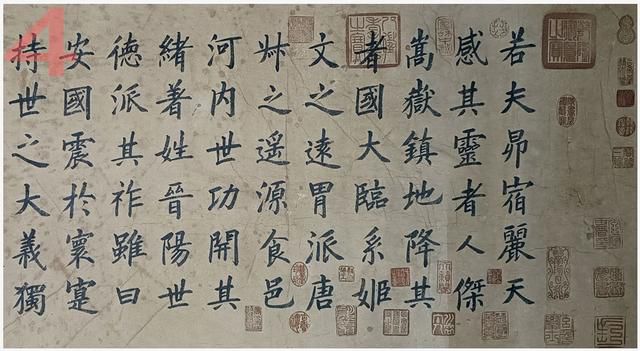 若夫昴宿麗天
感其靈者人傑
嵩嶽鎮地降其
者國大臨系姬
文之遠胄派唐
叔之遥源食邑
河内世功開其
緒著姓晉陽世
徳派其祚雖曰
安國震於寰寔
持世之大義獨
4